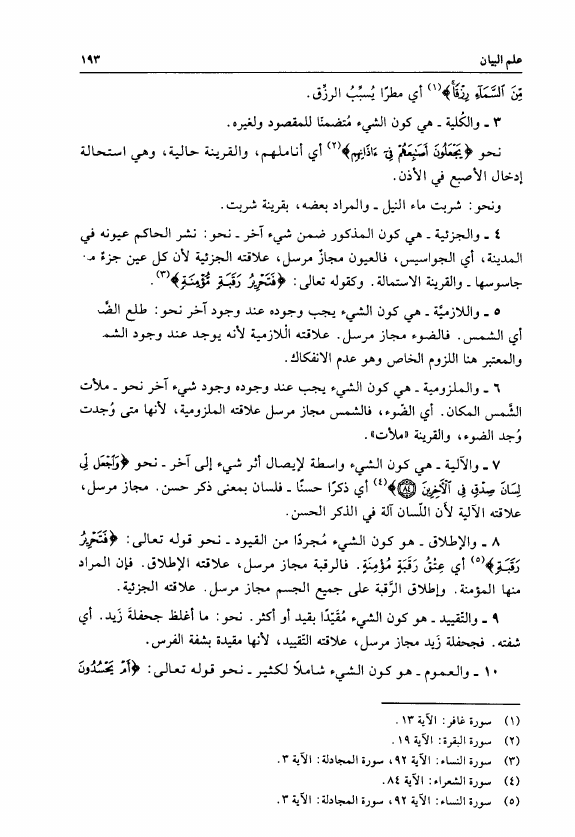 علم البيان ١٩٣
مِّنَ ٱلسَّمَآءِ رِزْقًاۚ﴾(١) أي مطرًا يُسبِّبُ الرزِّق.
٣ ـ والكُلية ـ هي كون الشيء مُتضمنًا للمقصود ولغيره.
نحو ﴿يَجْعَلُونَ أَصَٰبِعَهُمْ فِىٓ ءَاذَانِهِم﴾(٢) أي أناملهم، والقرينة حالية، وهي استحالة
إدخال الأصبع في الأذن.
ونحو: شربت ماء النيل ـ والمراد بعضه، بقرينة شربت.
٤ ـ والجزئية ـ هي كون المذكور ضمن شيء آخر ـ نحو: نشر الحاكم عيونه في
المدينة، أي الجواسيس، فالعيون مجازٌ مرسل، علاقته الجزئية لأن كل عين جزءٌ
جاسوسها ـ والقرينة الاستمالة. وكقوله تعالى: ﴿فَتَحْرِيرُ رَقَبَةٍ مُّؤْمِنَةٍ﴾(٣).
٥ ـ واللازميَّة ـ هي كون الشيء يجب وجوده عند وجود آخر نحو: طلع الضَّ
أي الشمس. فالضوء مجاز مرسل. علاقته الْلازمية لأنه يوجد عند وجود الشم
والمعتبر هنا اللزوم الخاص وهو عدم الانفكاك.
٦ ـ والملزومية ـ هي كون الشيء يجب عند وجوده وجود شيء آخر نحو ـ ملأت
الشَّمس المكان. أي الضّوء، فالشمس مجاز مرسل علاقته الملزومية، لأنها متى وُجدت
وُجد الضوء، والقرينة «ملأت».
٧ ـ والآلية ـ هي كون الشيء واسطة لإيصال أثر شيء إلى آخر ـ نحو ﴿وَٱجْعَل لِّى
لِسَانَ صِدْقٍ فِى ٱلْأَخِرِينَ ۝٨٤﴾(٤) أي ذكرًا حسنًا ـ فلسان بمعنى ذكر حسن. مجاز مرسل،
علاقته الآلية لأن اللّسان آلة في الذكر الحسن.
٨ ـ والإطلاق ـ هو كون الشيء مُجردًا من القيود ـ نحو قوله تعالى: ﴿فَتَحْرِيرُ
رَقَبَةٍ﴾(٥) أي عِتْقُ رَقَبَةٍ مُؤْمِنَةٍ. فالرقبة مجاز مرسل، علاقته الإطلاق. فإن المراد
منها المؤمنة. وإطلاق الرَّقبة على جميع الجسم مجاز مرسل. علاقته الجزئية.
٩ ـ والتّقييد ـ هو كون الشيء مُقَيّدًا بقيد أو أكثر. نحو: ما أغلظ جحفلةَ زَيد. أي
شفته. فجحفلة زَيد مجاز مرسل، علاقته التّقييد، لأنها مقيدة بشفة الفرس.
١٠ ـ والعموم ـ هو كون الشيء شاملًا لكثير ـ نحو قوله تعالى: ﴿أَمْ يَحْسُدُونَ
(١) سورة غافر: الآية ١٣.
(٢) سورة البقرة: الآية ١٩.
(٣) سورة النساء: الآية ٩٢، سورة المجادلة: الآية ٣.
(٤) سورة الشعراء: الآية ٨٤.
(٥) سورة النساء: الآية ٩٢، سورة المجادلة: الآية ٣.